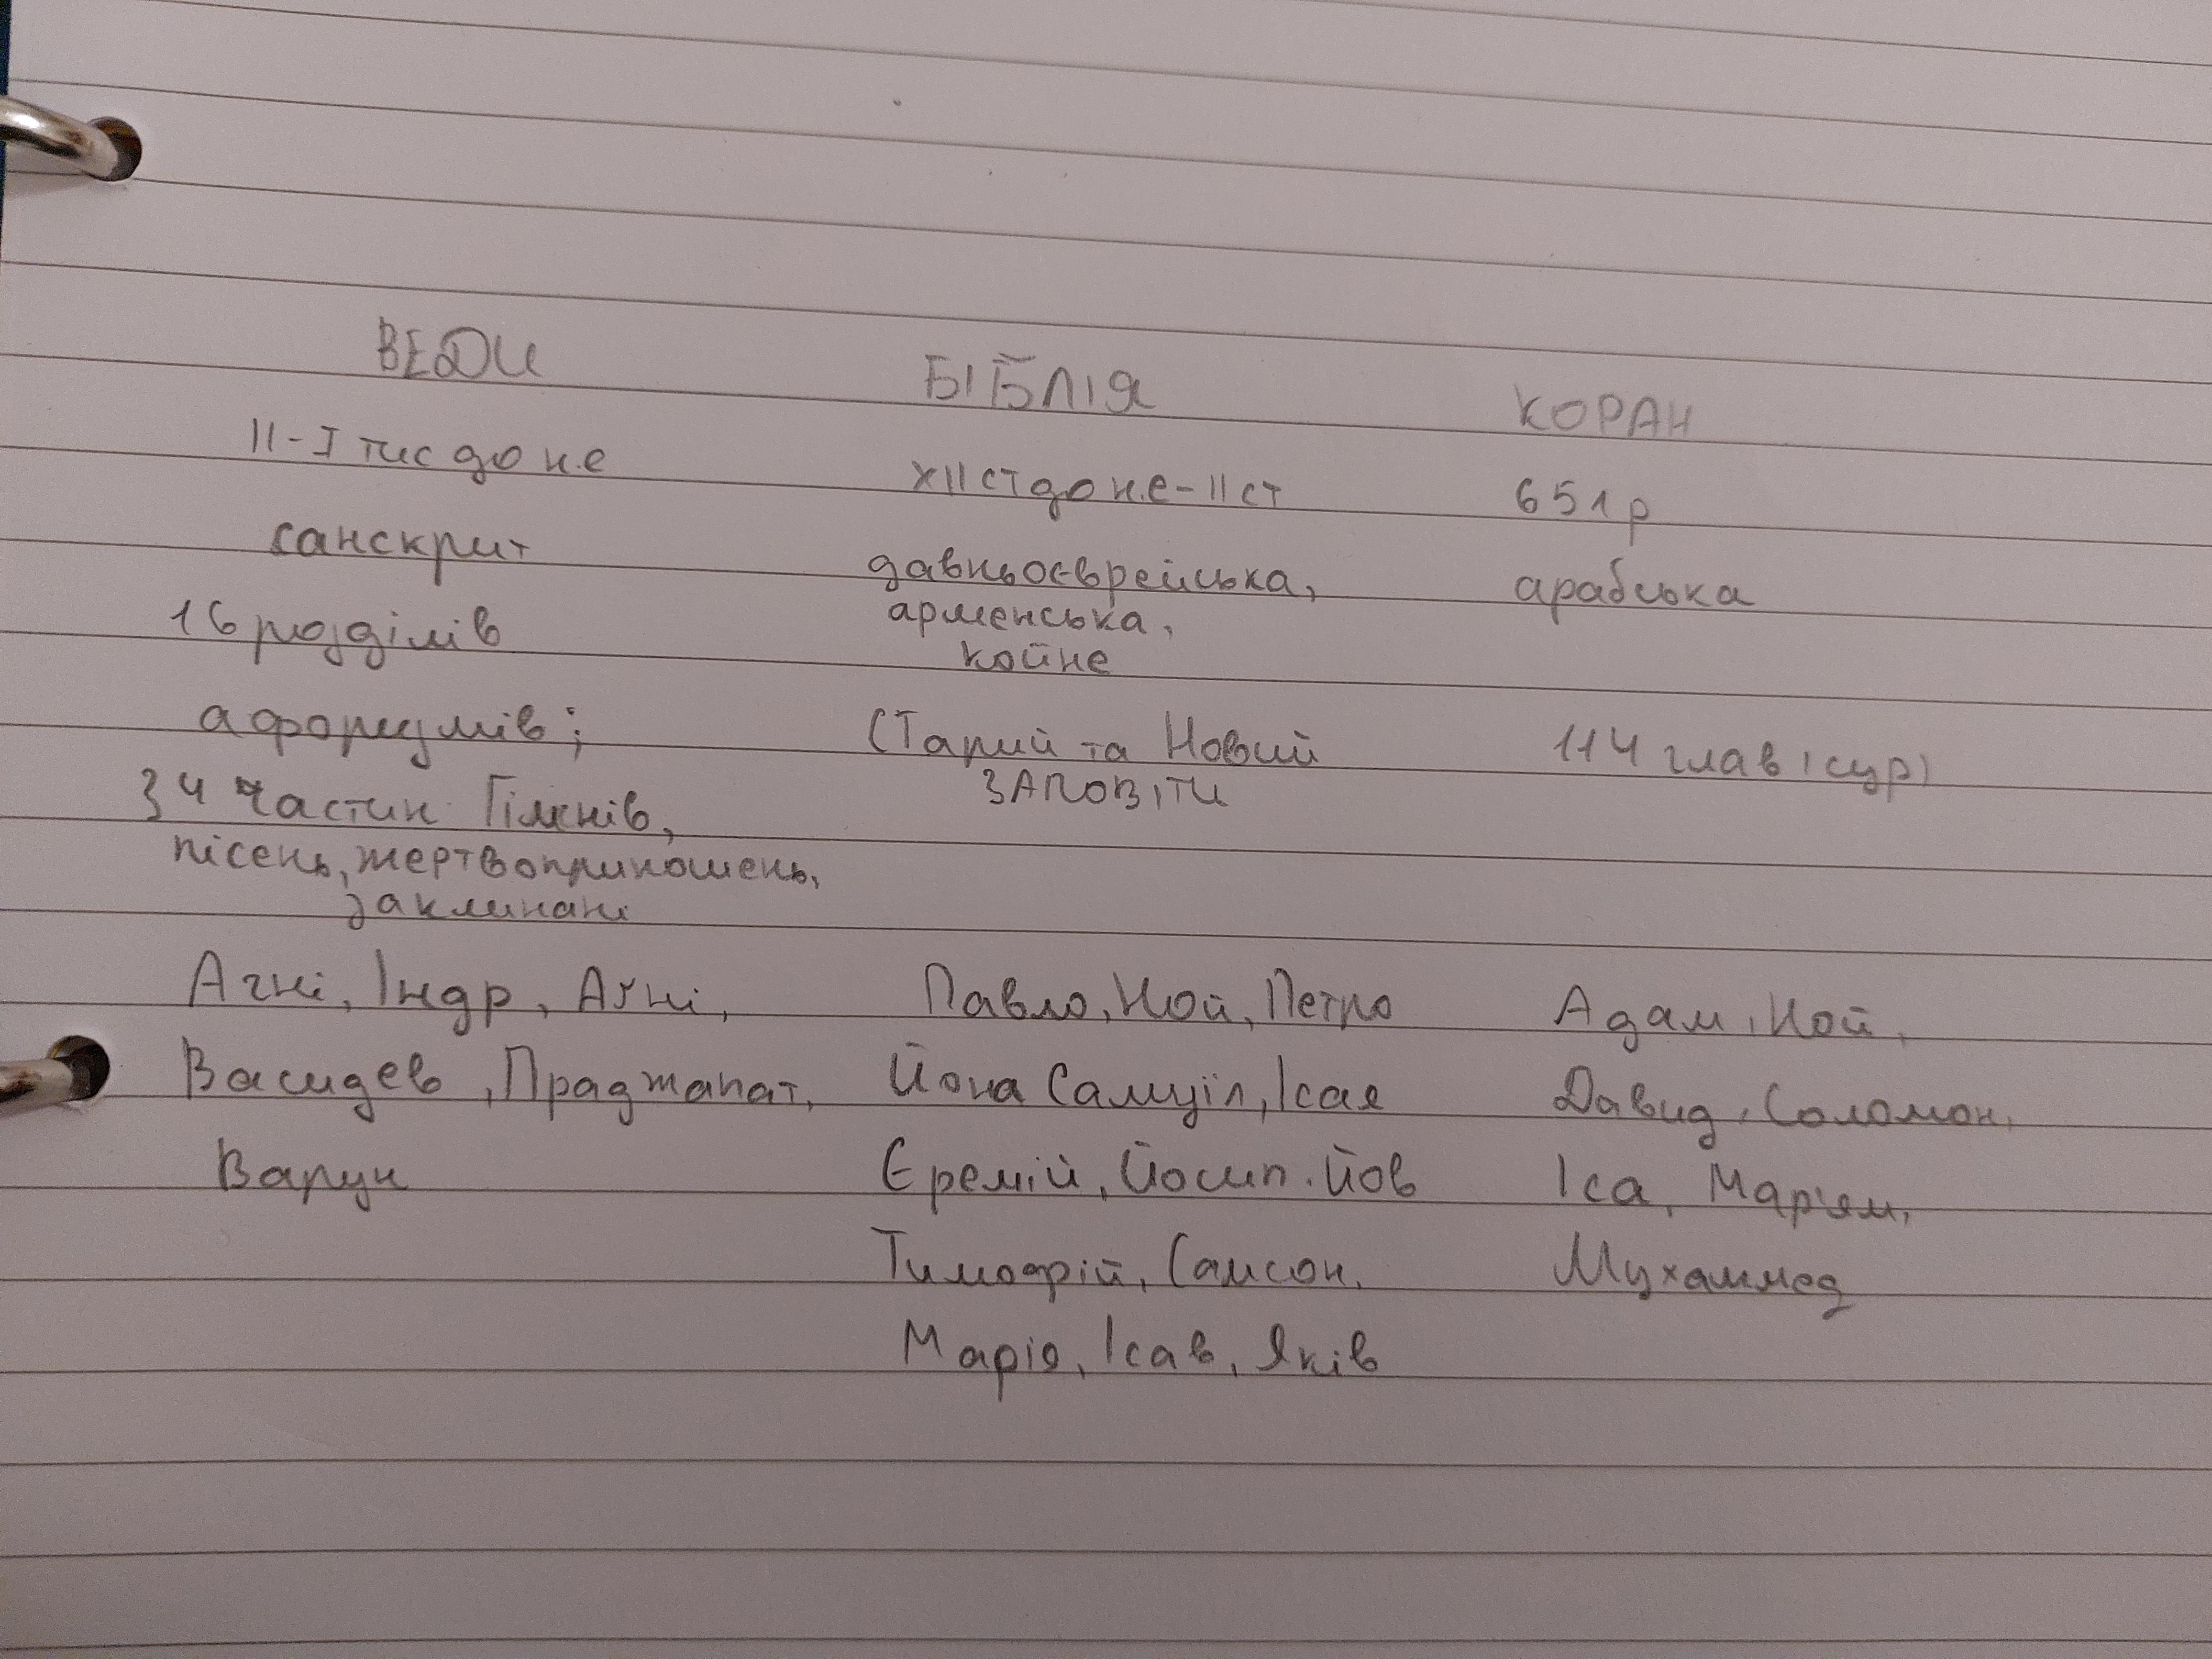 ВЕДИ БІБЛІЯ КОРАН
ІІ-І тис до н.е ХІІ ст до н.е-ІІ ст 651р
санскрит давньоєврейська, арабська
16 розділів арменська,
койне
афоризмів; Старий та Новий 114 глав (сур)
34 частин Гімнів, ЗАПОВІТИ
пісень, жертвоприношень,
заклинані
Агні, Індр, Агні, Павло, Ной, Петро Адам, Ной,
Васидев, Праджапат, Йона Самуїл, Ісая Давид, Соломон,
Варун Єремій, Йосип. Йов Іса, Мар'ям,
Тимофій, Самсон, Мухаммед
Марія, Ісав, Яків